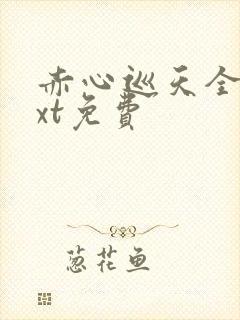 赤心巡天全
xt免費
葱花鱼